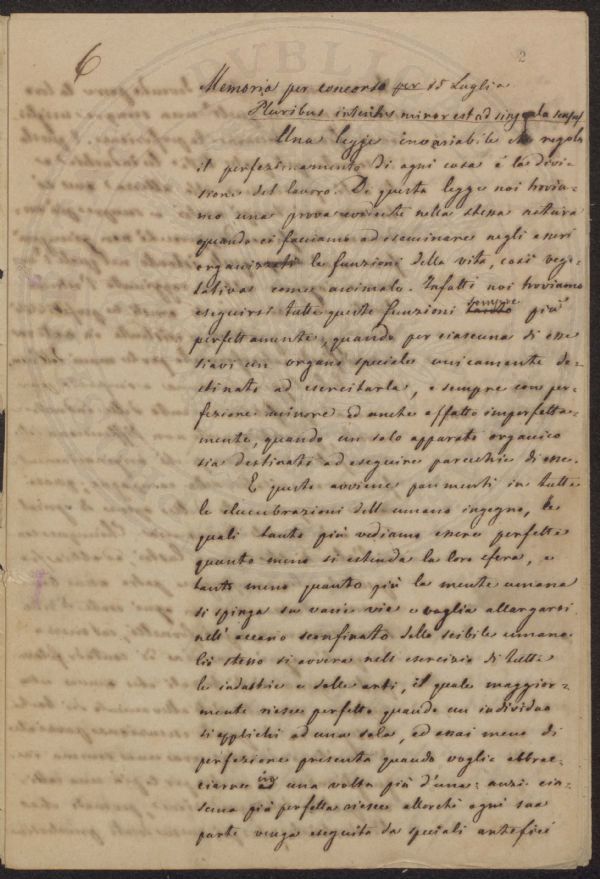 6
2
Memoria per concorso per 15 Luglio
Pluribus intentus minor est ad singula sensus
Una legge invariabile che regola
il perfezionamento di ogni cosa é la divi=
sione del lavoro. Di questa legge noi trovia=
mo una prova evidente nella stessa natura
quando ci facciamo ad esaminare negli esseri
organizzati le funzioni della vita, così vege=
tativa come animale. Infatti noi troviamo
eseguirsi tutte queste funzioni sempre più
perfettamente, quando per ciascuna di esse
siavi un organo speciale unicamente de=
stinato ad esercitarla, e sempre con per=
fezione minore ed anche affatto imperfetta=
mente, quando un solo apparato organico
sia destinato ad eseguire parecchie di esse.
E questo avviene parimenti in tutte
le elucubrazioni dell umano ingegno, le
quali tanto più vediamo essere perfette
quanto meno si estenda la loro sfera, e
tanto meno quanto più la mente umana
si spinga su varie vie e voglia allargarsi
nell' oceano sconfinato dello scibile umano.
Ciò stesso si avvera nell esercizio di tutte
le industrie e delle arti, il quale maggior=
mente riesce perfetto quando un individuo
si applichi ad una sola, ed assai meno di
perfezione presenta quando voglia abbrac=
ciarne in una volta più d'una: anzi cia=
scuna più perfetta riesce allorché ogni sua
parte venga eseguita da speciali artefici